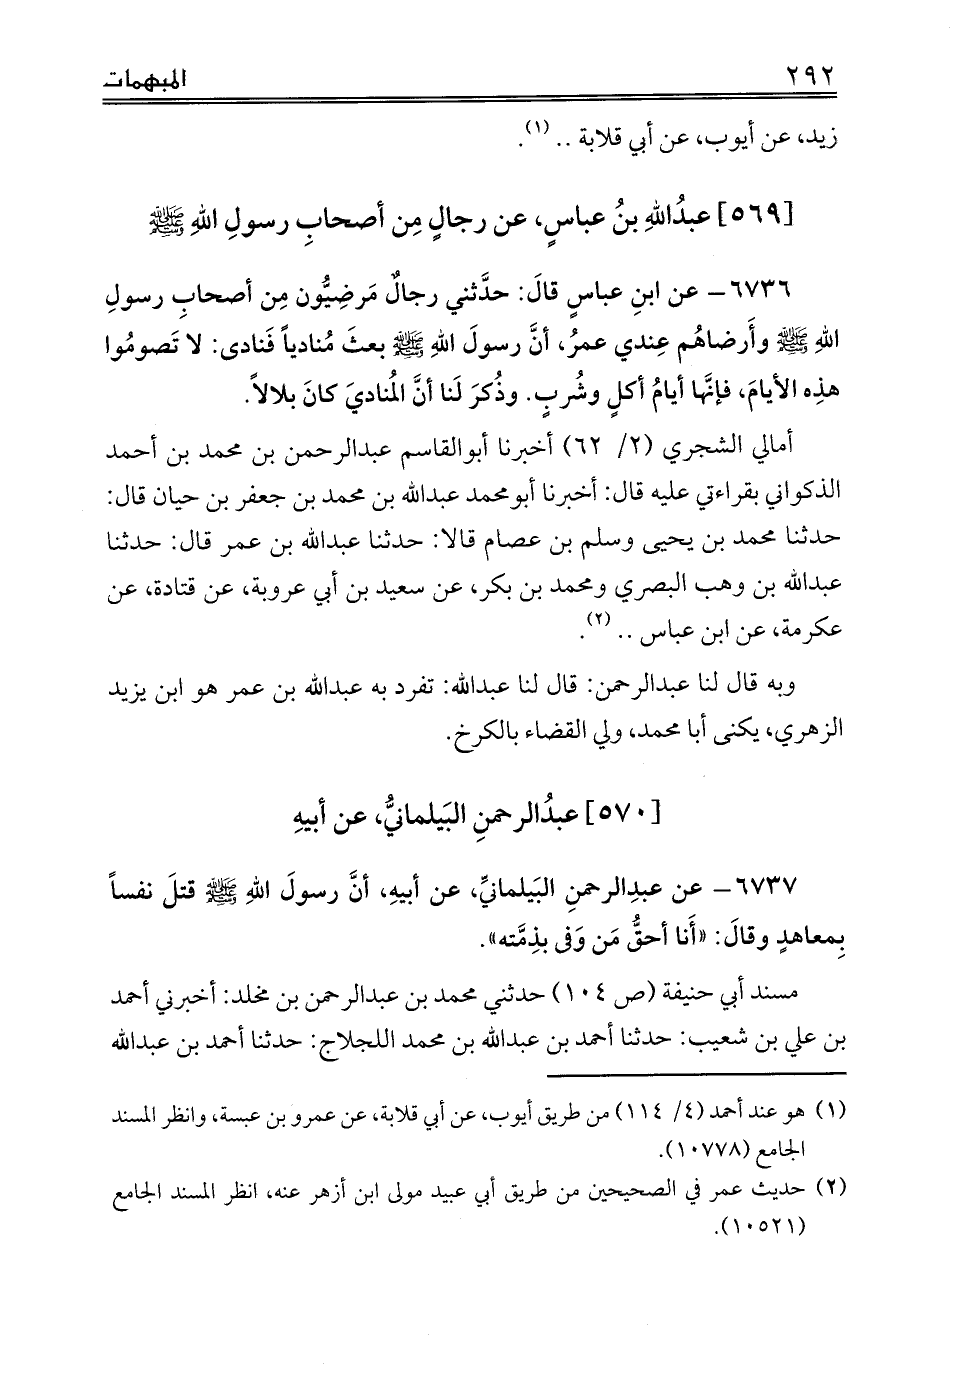 ٢٩٢ المبهمات
زيد، عن أيوب، عن أبي قلابة .. (١).
[٥٦٩] عبدُاللهِ بنُ عباسٍ، عن رجالٍ مِن أصحابِ رسولِ اللهِ ﷺ
٦٧٣٦- عن ابنِ عباسٍ قالَ: حدَّثني رجالٌ مَرضِيُّون مِن أصحابِ رسولِ
اللهِ ﷺ وأَرضاهُم عِندي عمرُ، أنَّ رسولَ اللهِ ﷺ بعثَ مُنادياً فَنادى: لا تَصومُوا
هذِه الأيامَ، فإنَّها أيامُ أكلٍ وشُربٍ. وذُكرَ لَنا أنَّ المُناديَ كانَ بلالاً.
أمالي الشجري (٢/ ٦٢) أخبرنا أبوالقاسم عبدالرحمن بن محمد بن أحمد
الذكواني بقراءتي عليه قال: أخبرنا أبو محمد عبدالله بن محمد بن جعفر بن حيان قال:
حدثنا محمد بن يحيى وسلم بن عصام قالا: حدثنا عبدالله بن عمر قال: حدثنا
عبدالله بن وهب البصري ومحمد بن بكر، عن سعيد بن أبي عروبة، عن قتادة، عن
عكرمة، عن ابن عباس .. (٢).
وبه قال لنا عبدالرحمن: قال لنا عبدالله: تفرد به عبدالله بن عمر هو ابن يزيد
الزهري، يكنى أبا محمد، ولي القضاء بالكرخ.
[٥٧٠] عبدُالرحمنِ البَيلمانيُّ، عن أبيهِ
٦٧٣٧- عن عبدِالرحمنِ البَيلمانيِّ، عن أبيهِ، أنَّ رسولَ اللهِ ﷺ قتلَ نفساً
بِمعاهدٍ وقالَ: «أَنا أحقُّ مَن وَفى بذِمَّته».
مسند أبي حنيفة (ص ١٠٤) حدثني محمد بن عبدالرحمن بن مخلد: أخبرني أحمد
بن علي بن شعيب: حدثنا أحمد بن عبدالله بن محمد اللجلاج: حدثنا أحمد بن عبدالله
(١) هو عند أحمد (٤/ ١١٤) من طريق أيوب، عن أبي قلابة، عن عمرو بن عبسة، وانظر المسند
الجامع (١٠٧٧٨).
(٢) حديث عمر في الصحيحين من طريق أبي عبيد مولى ابن أزهر عنه، انظر المسند الجامع
(١٠٥٢١).